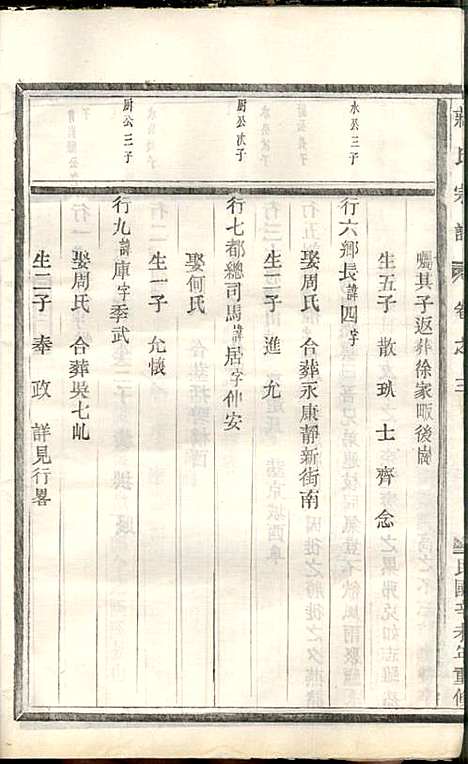 蔣氏宗譜 卷之三
民國辛未年重修
囑其子返葬徐家畈後崗
生五子 散 士 齊 念
水公三子
行六鄉長諱四字
娶周氏 合葬永康靜新街南
生二子 進 允
厨公次子
行七都總司馬諱居字仲安
娶何氏
生一子 允懷
厨公三子
行九諱庫字季武
娶周氏 合葬吳七屾
生二子 奉 政 詳見行畧